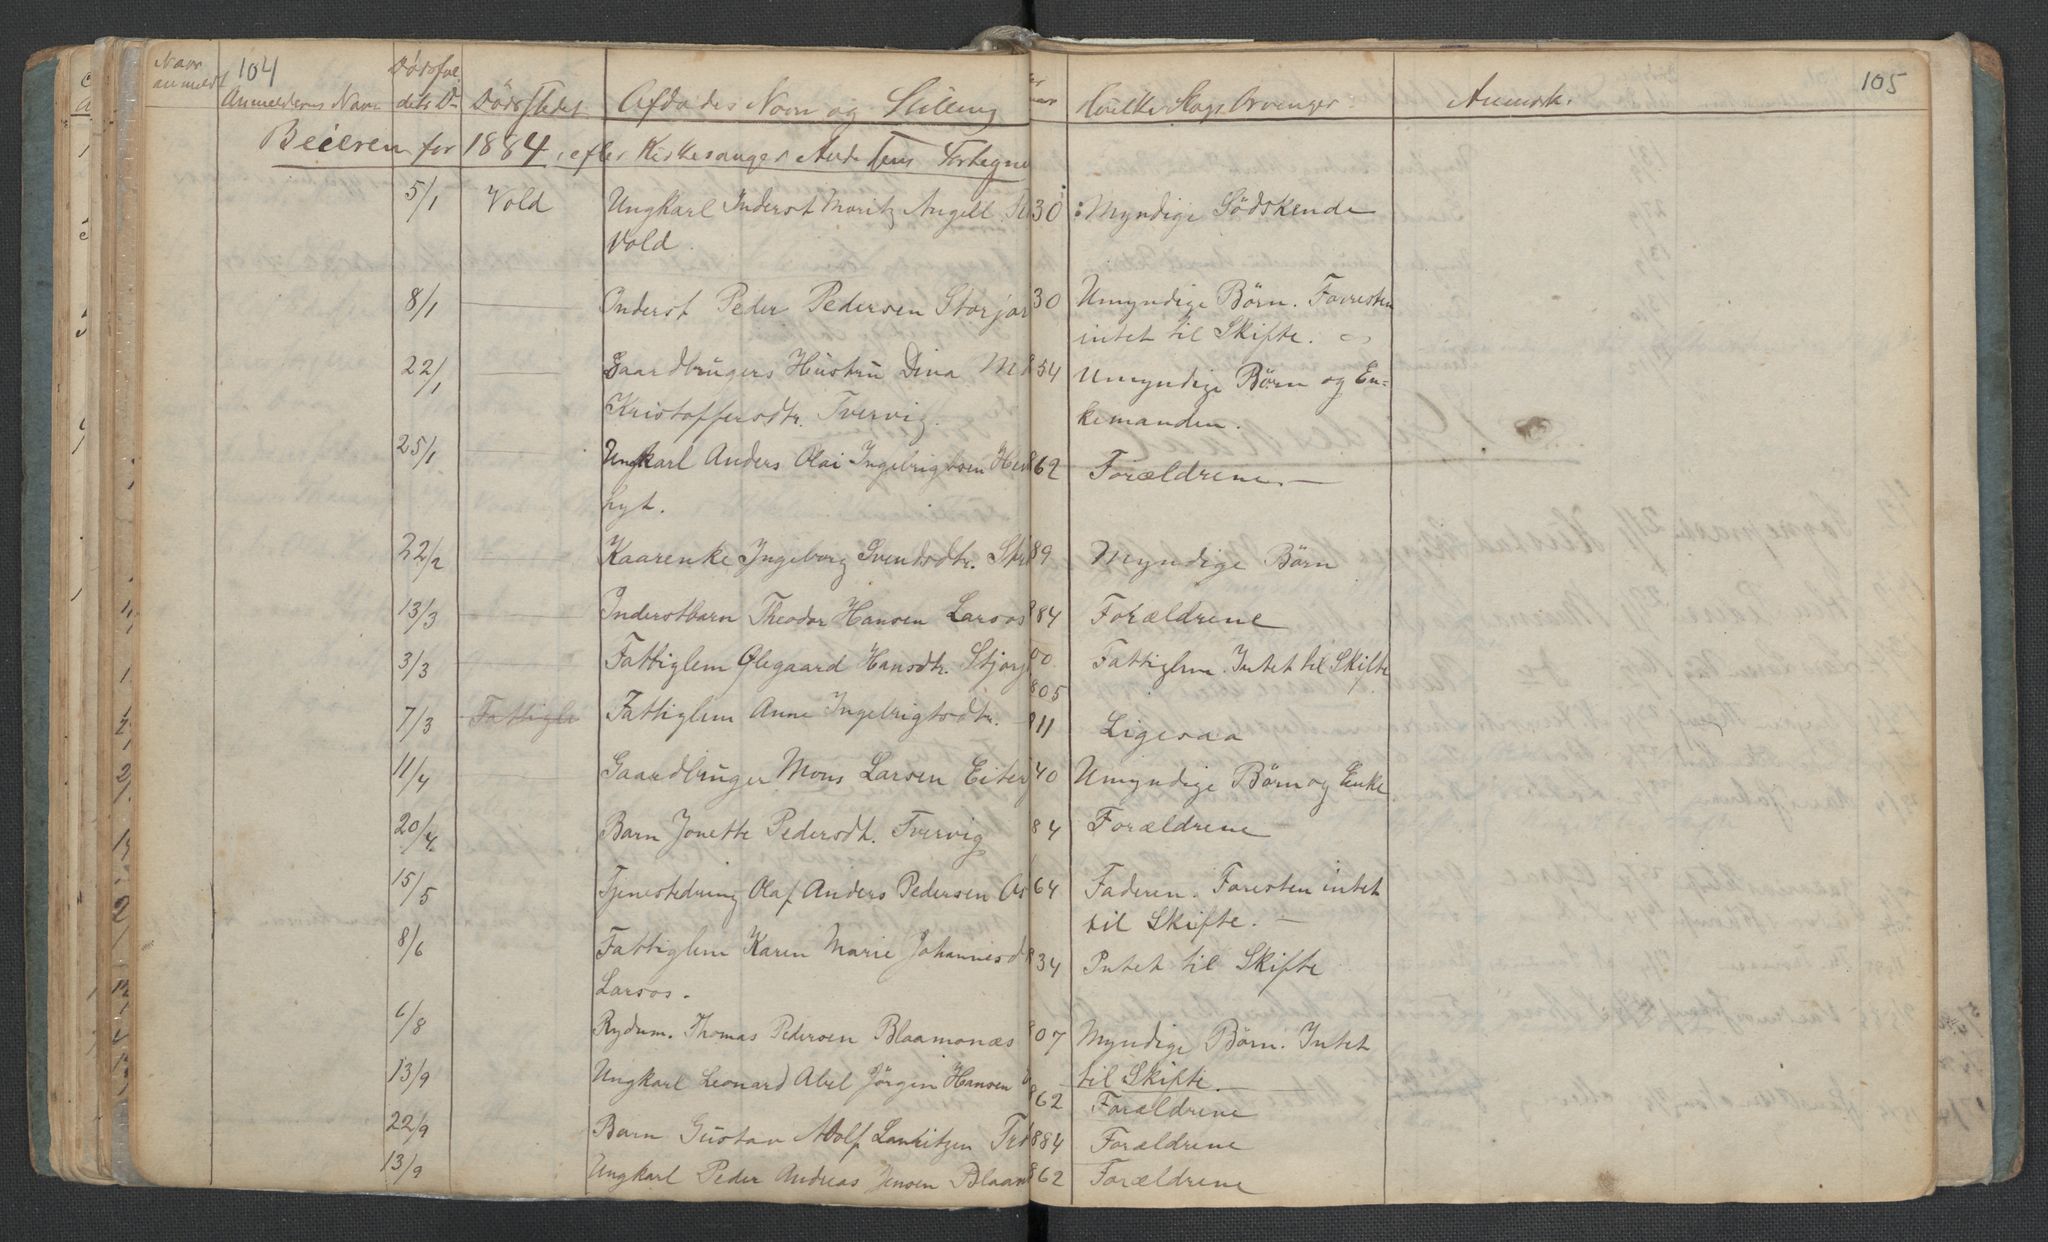 Naar
anmeldt
104
Anmelderens Navn
Dødsfal
dets D-
Dødsstedet
Afdødes Navn og Stilling
Hvilke Slags Arvinger.
Anmerk.
105
Beieren for 1884, efter Kirkesanger Fortegne
5/1 Vold Ungkarl Inderst Moritz Angell 30 Myndige Södskende
Vold.
8/1 Inderst Peder Pedersen Storjor 30 Umyndige Börn. Forresten
intet til Skifte.
22/1 Gaardbrugers Hustru Dina M 54 Umyndige Börn og En-
Kristoffersdtr. Tvervig. kemanden.
25/1 Ungkarl Anders Olai Ingebrigtsen 862 Forældrene.
hyt.
22/2 Kaarenke Ingeborg Svendsdtr. 89 Myndige Börn
13/3 Inderstbarn Theodor Hansen Larsos 884 Forældrene
3/3 Fattiglem Ølegaard Hansdtr. Storj 00. Fattiglem. Intet til Skifte
805
7/3 Fattigle Fattiglem Anne Ingebrigtsdtr. 811 Ligesaa
11/4 Gaardbruger Mons Larsen Eiter 40 Umyndige Börn og Enke
20/4 Barn Jonette Pedersdt. Tvervig 84 Forældrene
15/5 Tjenestedreng Olaf Anders Pedersen As 64 Faderen. Foresten intet
til Skifte.
8/6 Fattiglem Karen Marie Johannesd 834 Intet til Skifte
Larsos.
6/8 Rydnm. Thomas Pedersen Blaamonæs 807 Myndige Börn. Intet
til Skifte.
13/9 Ungkarl Leonard Abel Jörgin Hansen 862 Forældrene
22/9 Barn Gustav Adolf Lauritzen 884 Forældrene
13/9 Ungkarl Peder Andreas Jensen Blaam 862 Forældrene